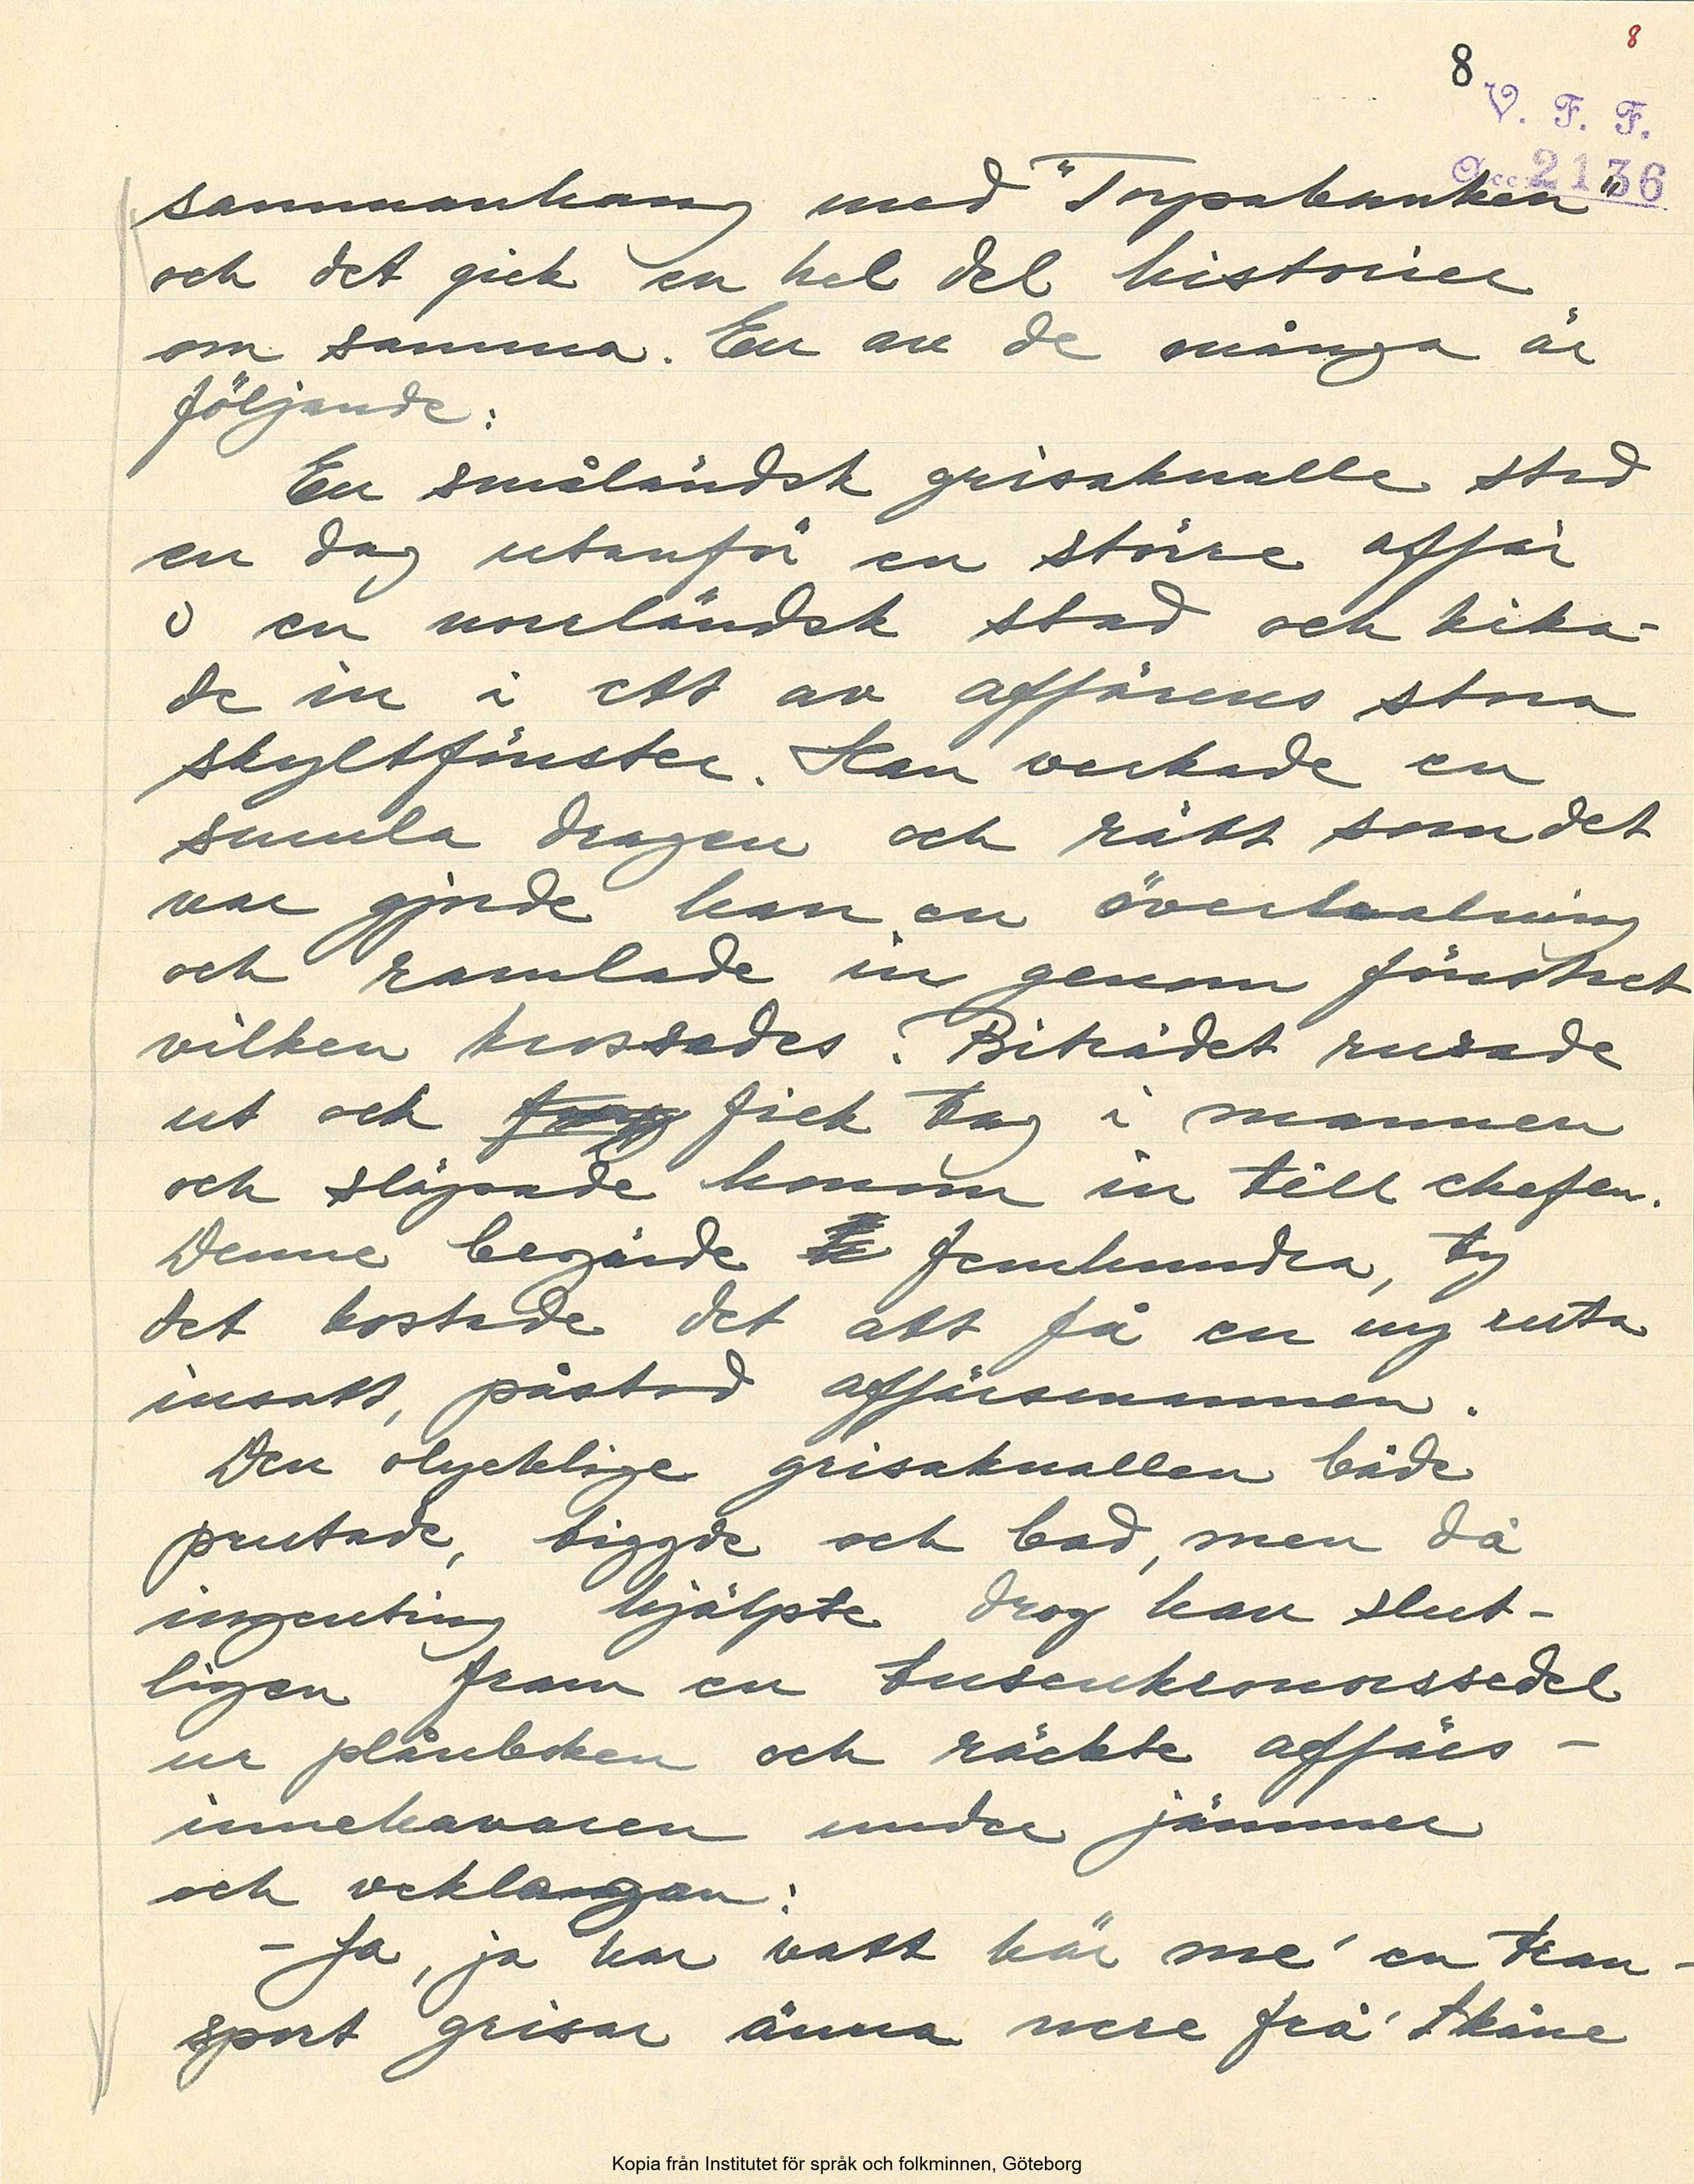 8
8
V. F. F.
Acc. 2136
sammanhang med "Torpabanken"
och det gick en hel del historier
om samma. En av de många är
följande:
En småländsk grisaknalle stod
en dag utanför en större affär
i en norrländsk stad och kika-
de in i ett av affärens stora
skyltfönster. Han verkade en
smula dragen och rätt som det
var gjorde han en överhalning
och ramlade in genom fönstret
vilken krossades. Biträdet rusade
ut och fick tag i mannen
och släpade honom in till chefen.
Denne begärde femhundra, ty
det kostade det att få en ny ruta
insatt, påstod affärsmannen.
Den olycklige grisaknallen både
prutade, tiggde och bad, men då
ingenting hjälpte drog han slut-
ligen fram en tusenkronorssedel
ur plånboken och räckte affärs-
innehavaren under jämmer
och veklangan:
- Ja, ja har vatt här me' en tran-
sport grisar änna nere frå' Skåne
Kopia från Institutet för språk och folkminnen, Göteborg